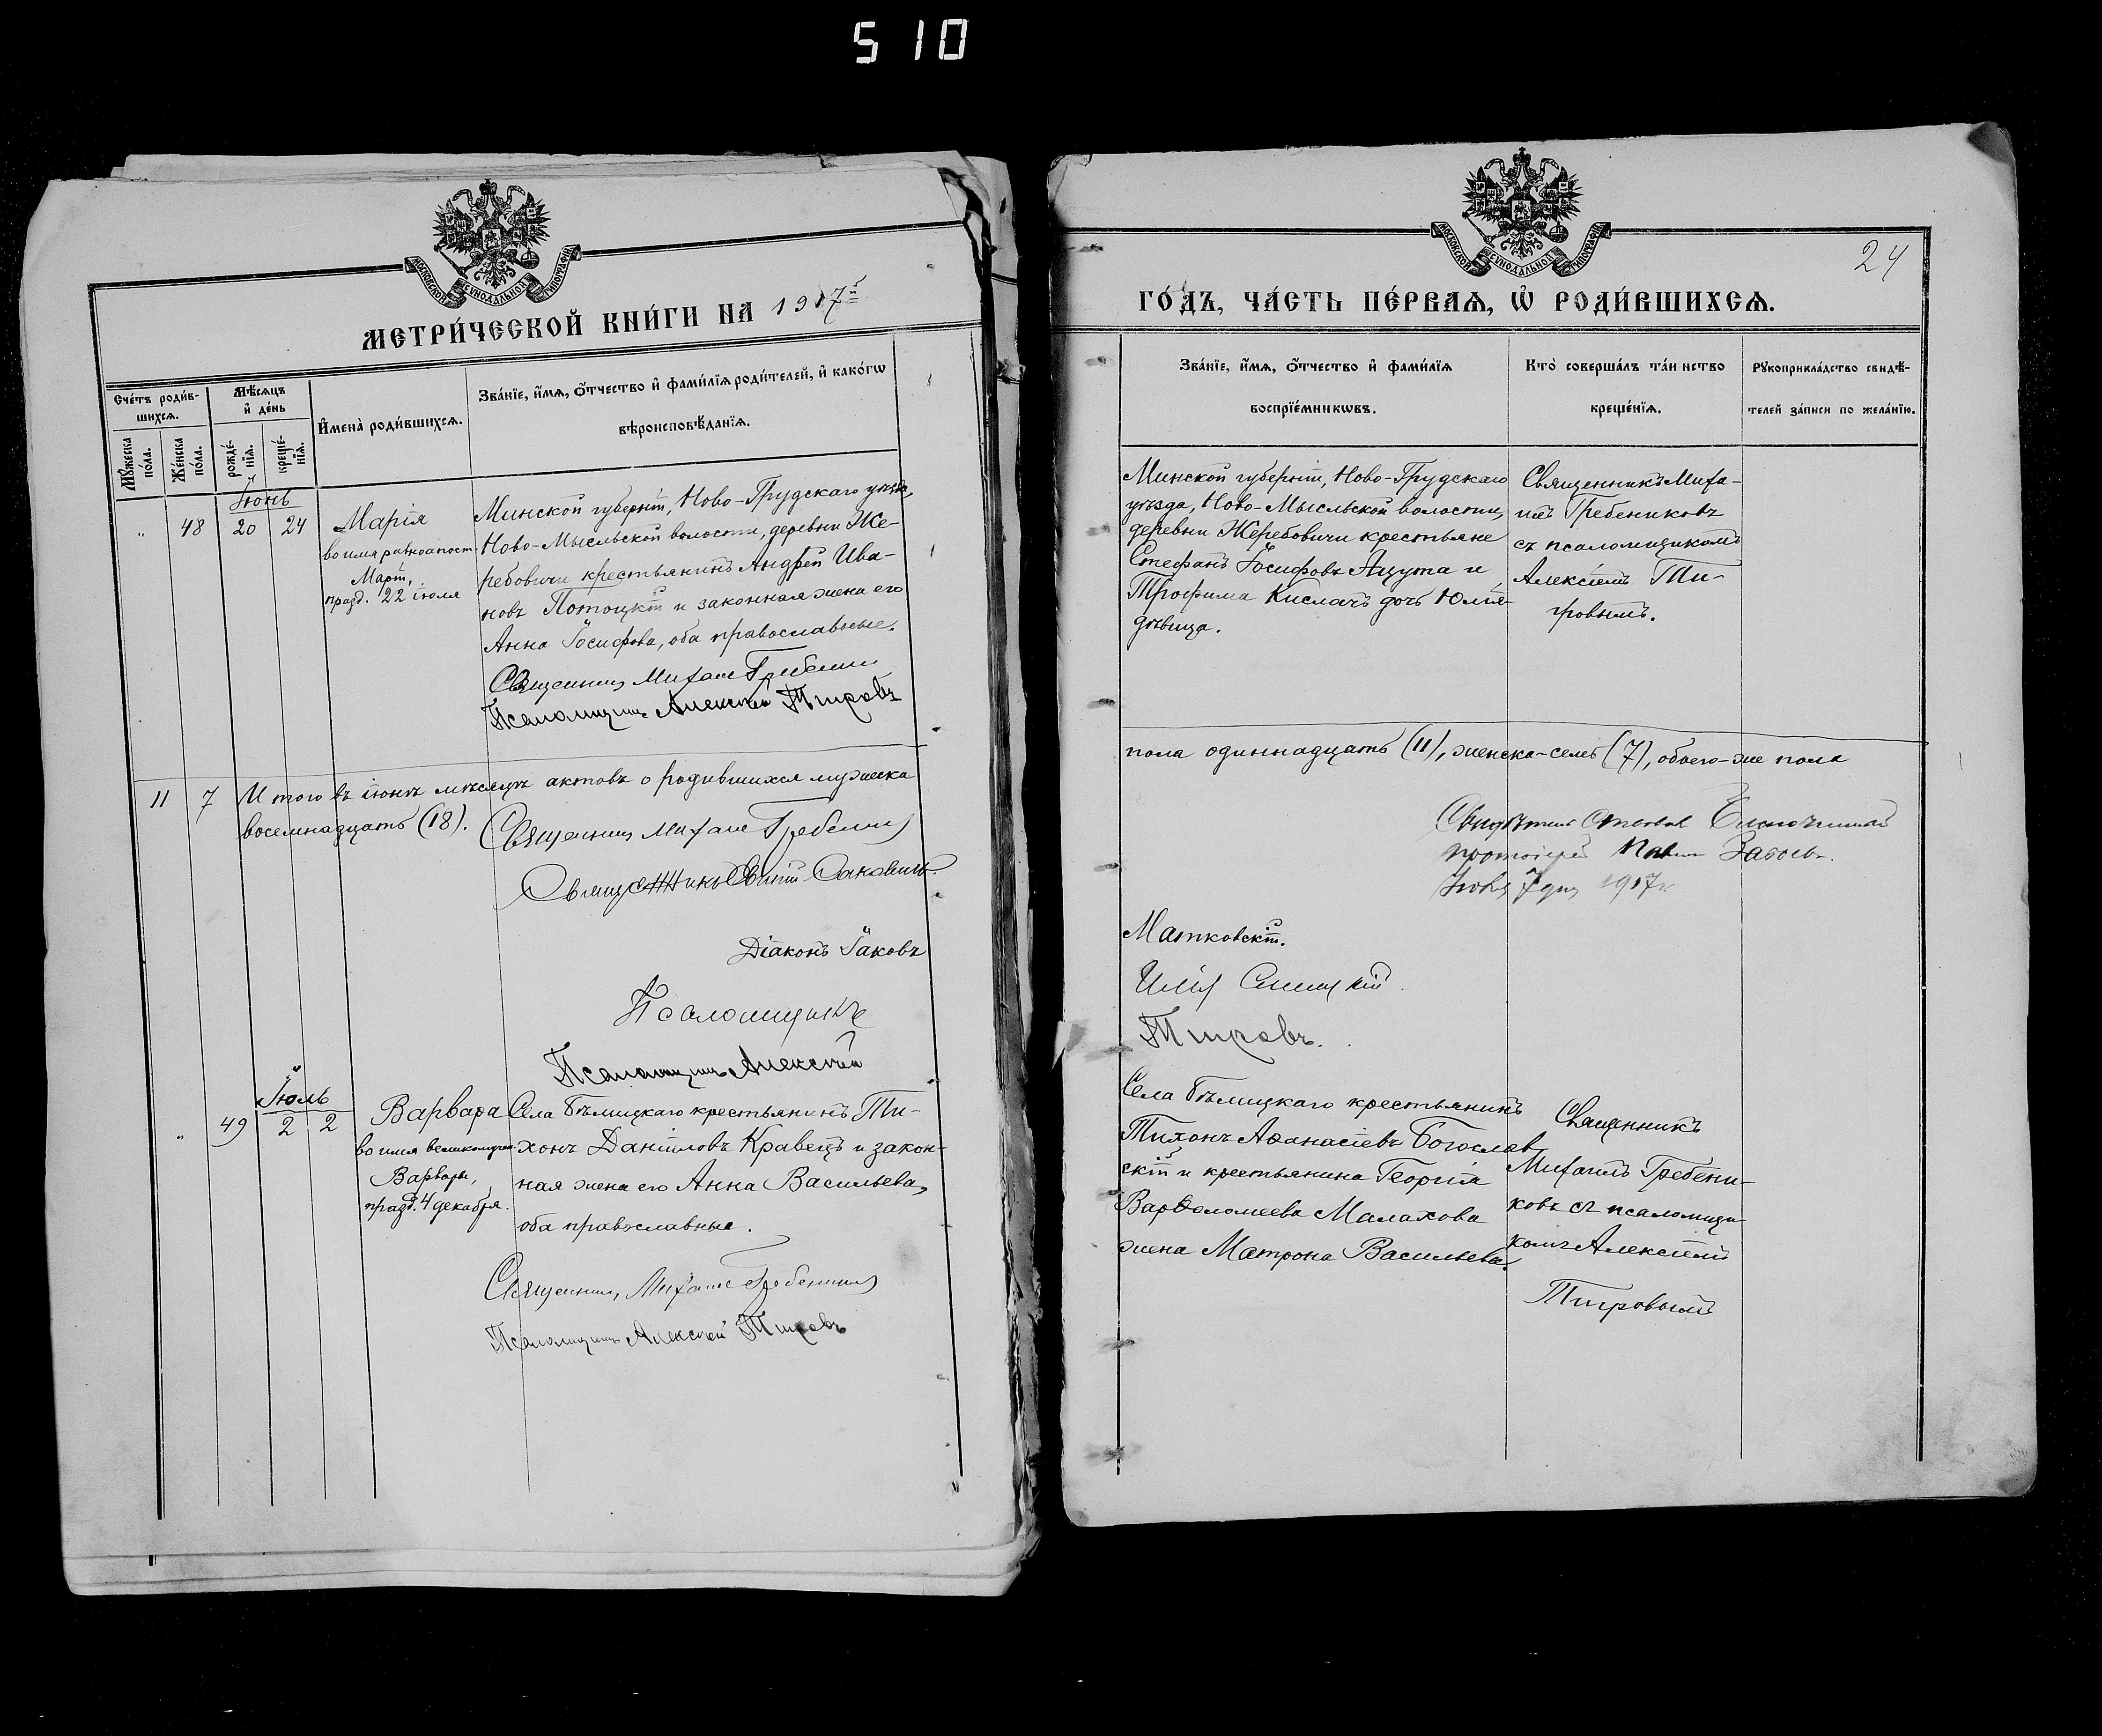 510
МОСКОВСКОЙ СУНОДАЛЬНОЙ ТИПОГРАФІИ
МЕТРИ́ЧЕСКОЙ КНИ́ГИ НА 1917й
Сче́тъ роди́в-
шихсѧ.
Мѣ́сѧцъ
и҆ де́нь
Мꙋ́жеска
по́ла.
Же́нска
по́ла.
рожде́-
нїѧ.
креще́-
нїѧ.
И҆мена̀ роди́вшихсѧ.
Зва́нїе, и҆́мѧ, ѻ҆́тчество и҆ фами́лїѧ роди́телей, и҆ како́гѡ
вѣроисповѣ́данїѧ.
Іюнь
" 48 20 24
Марія
во имя равноапост.
Маріи,
празд. 22 іюля
Минской губерніи, Ново-Грудскаго уѣзда,
Ново-Мысльской волости, деревни Же-
ребовичи крестьянинъ Андрей Ива-
новъ Потоцкій и законная жена его
Анна Іосифова, оба православные.
Священникъ Михаилъ Гребениковъ
Псаломщикъ Алексѣй Тигровъ
11 7 Итого въ іюнѣ мѣсяцѣ актовъ о родившихся мужеска
восемнадцать (18).
Священникъ Михаилъ Гребениковъ
Священникъ
Діаконъ Іаковъ
Псаломщикъ
Псаломщикъ Алексѣй
Іюль
" 49 2 2
Варвара
во имя великомучен.
Варвары,
празд. 4 декабря.
Села Бѣлицкаго крестьянинъ Ти-
хонъ Даніиловъ Кравецъ и закон-
ная жена его Анна Васильева,
оба православные.
Священникъ Михаилъ Гребениковъ
Псаломщикъ Алексѣй Тигровъ
МОСКОВСКОЙ СУНОДАЛЬНОЙ ТИПОГРАФІИ
24
ГО́ДЪ, ЧА́СТЬ ПЕ́РВАѦ, Ѡ҆ РОДИ́ВШИХСѦ.
Зва́нїе, и҆́мѧ, ѻ҆́тчество и҆ фами́лїѧ
воспрїе́мникѡвъ.
Кто̀ соверша́лъ та́инство
креще́нїѧ.
Рꙋкоприкла́дство свидѣ́-
телей за́писи по жела́нїю.
Минской губерніи, Ново-Грудскаго
уѣзда, Ново-Мысльской волости,
деревни Жеребовичи крестьяне
Стефанъ Іосифовъ Ацута и
Трофима Кислачъ дочь Юлія
дѣвица.
Священникъ Миха-
илъ Гребениковъ
съ псаломщикомъ
Алексѣемъ Ти-
гровымъ.
пола одиннадцать (11), женска-семь (7), обоего-же пола
протоіерей
1917 г.
Матковскій.
Илія
Тигровъ.
Села Бѣлицкаго крестьянинъ
Тихонъ Аѳанасіевъ Богослов-
скій и крестьянина Георгія
Варѳоломеева Малахова
жена Матрона Васильева.
Священникъ
Михаилъ Гребени-
ковъ съ псаломщи-
комъ Алексѣемъ
Тигровымъ